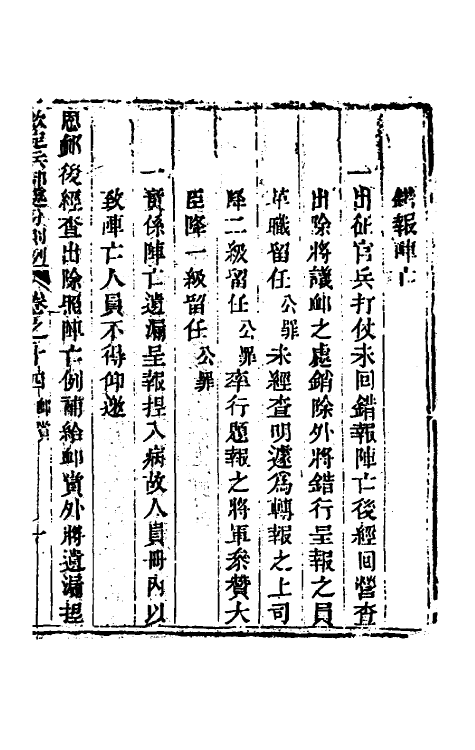 錯報陣亡
一出征官兵打仗未回錯報陣亡後經回營查
出除將議卹之處銷除外將錯行呈報之員
革職留任公罪未經查明遽為轉報之上司
降二級留任公罪率行題報之將軍叅贊大
臣降一級留任公罪
一實係陣亡遺漏呈報捏入病故人員冊內以
致陣亡人員不得仰邀
恩卹後經查出除照陣亡例補給卹賞外將遺漏捏
欽定兵部處分則例 卷之十四 卹賞